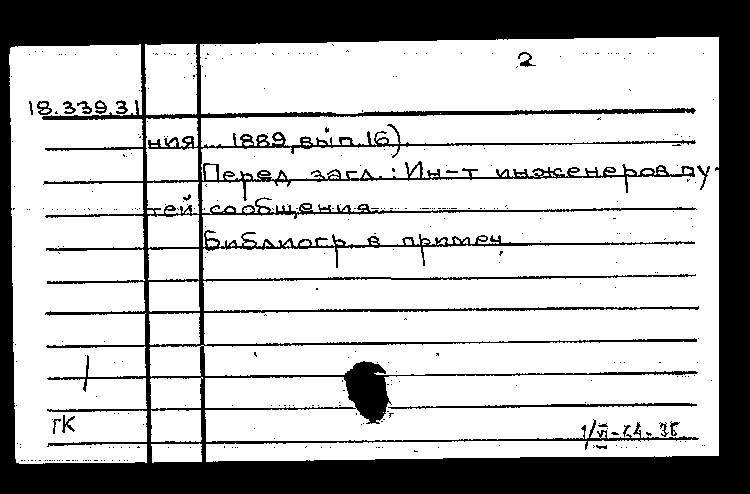 2
18.339.31
ния... 1889, вып. 16).
Перед загл.: Ин-т инженеров пу-
тей сообщения.
Библиогр. в примеч.
ГК